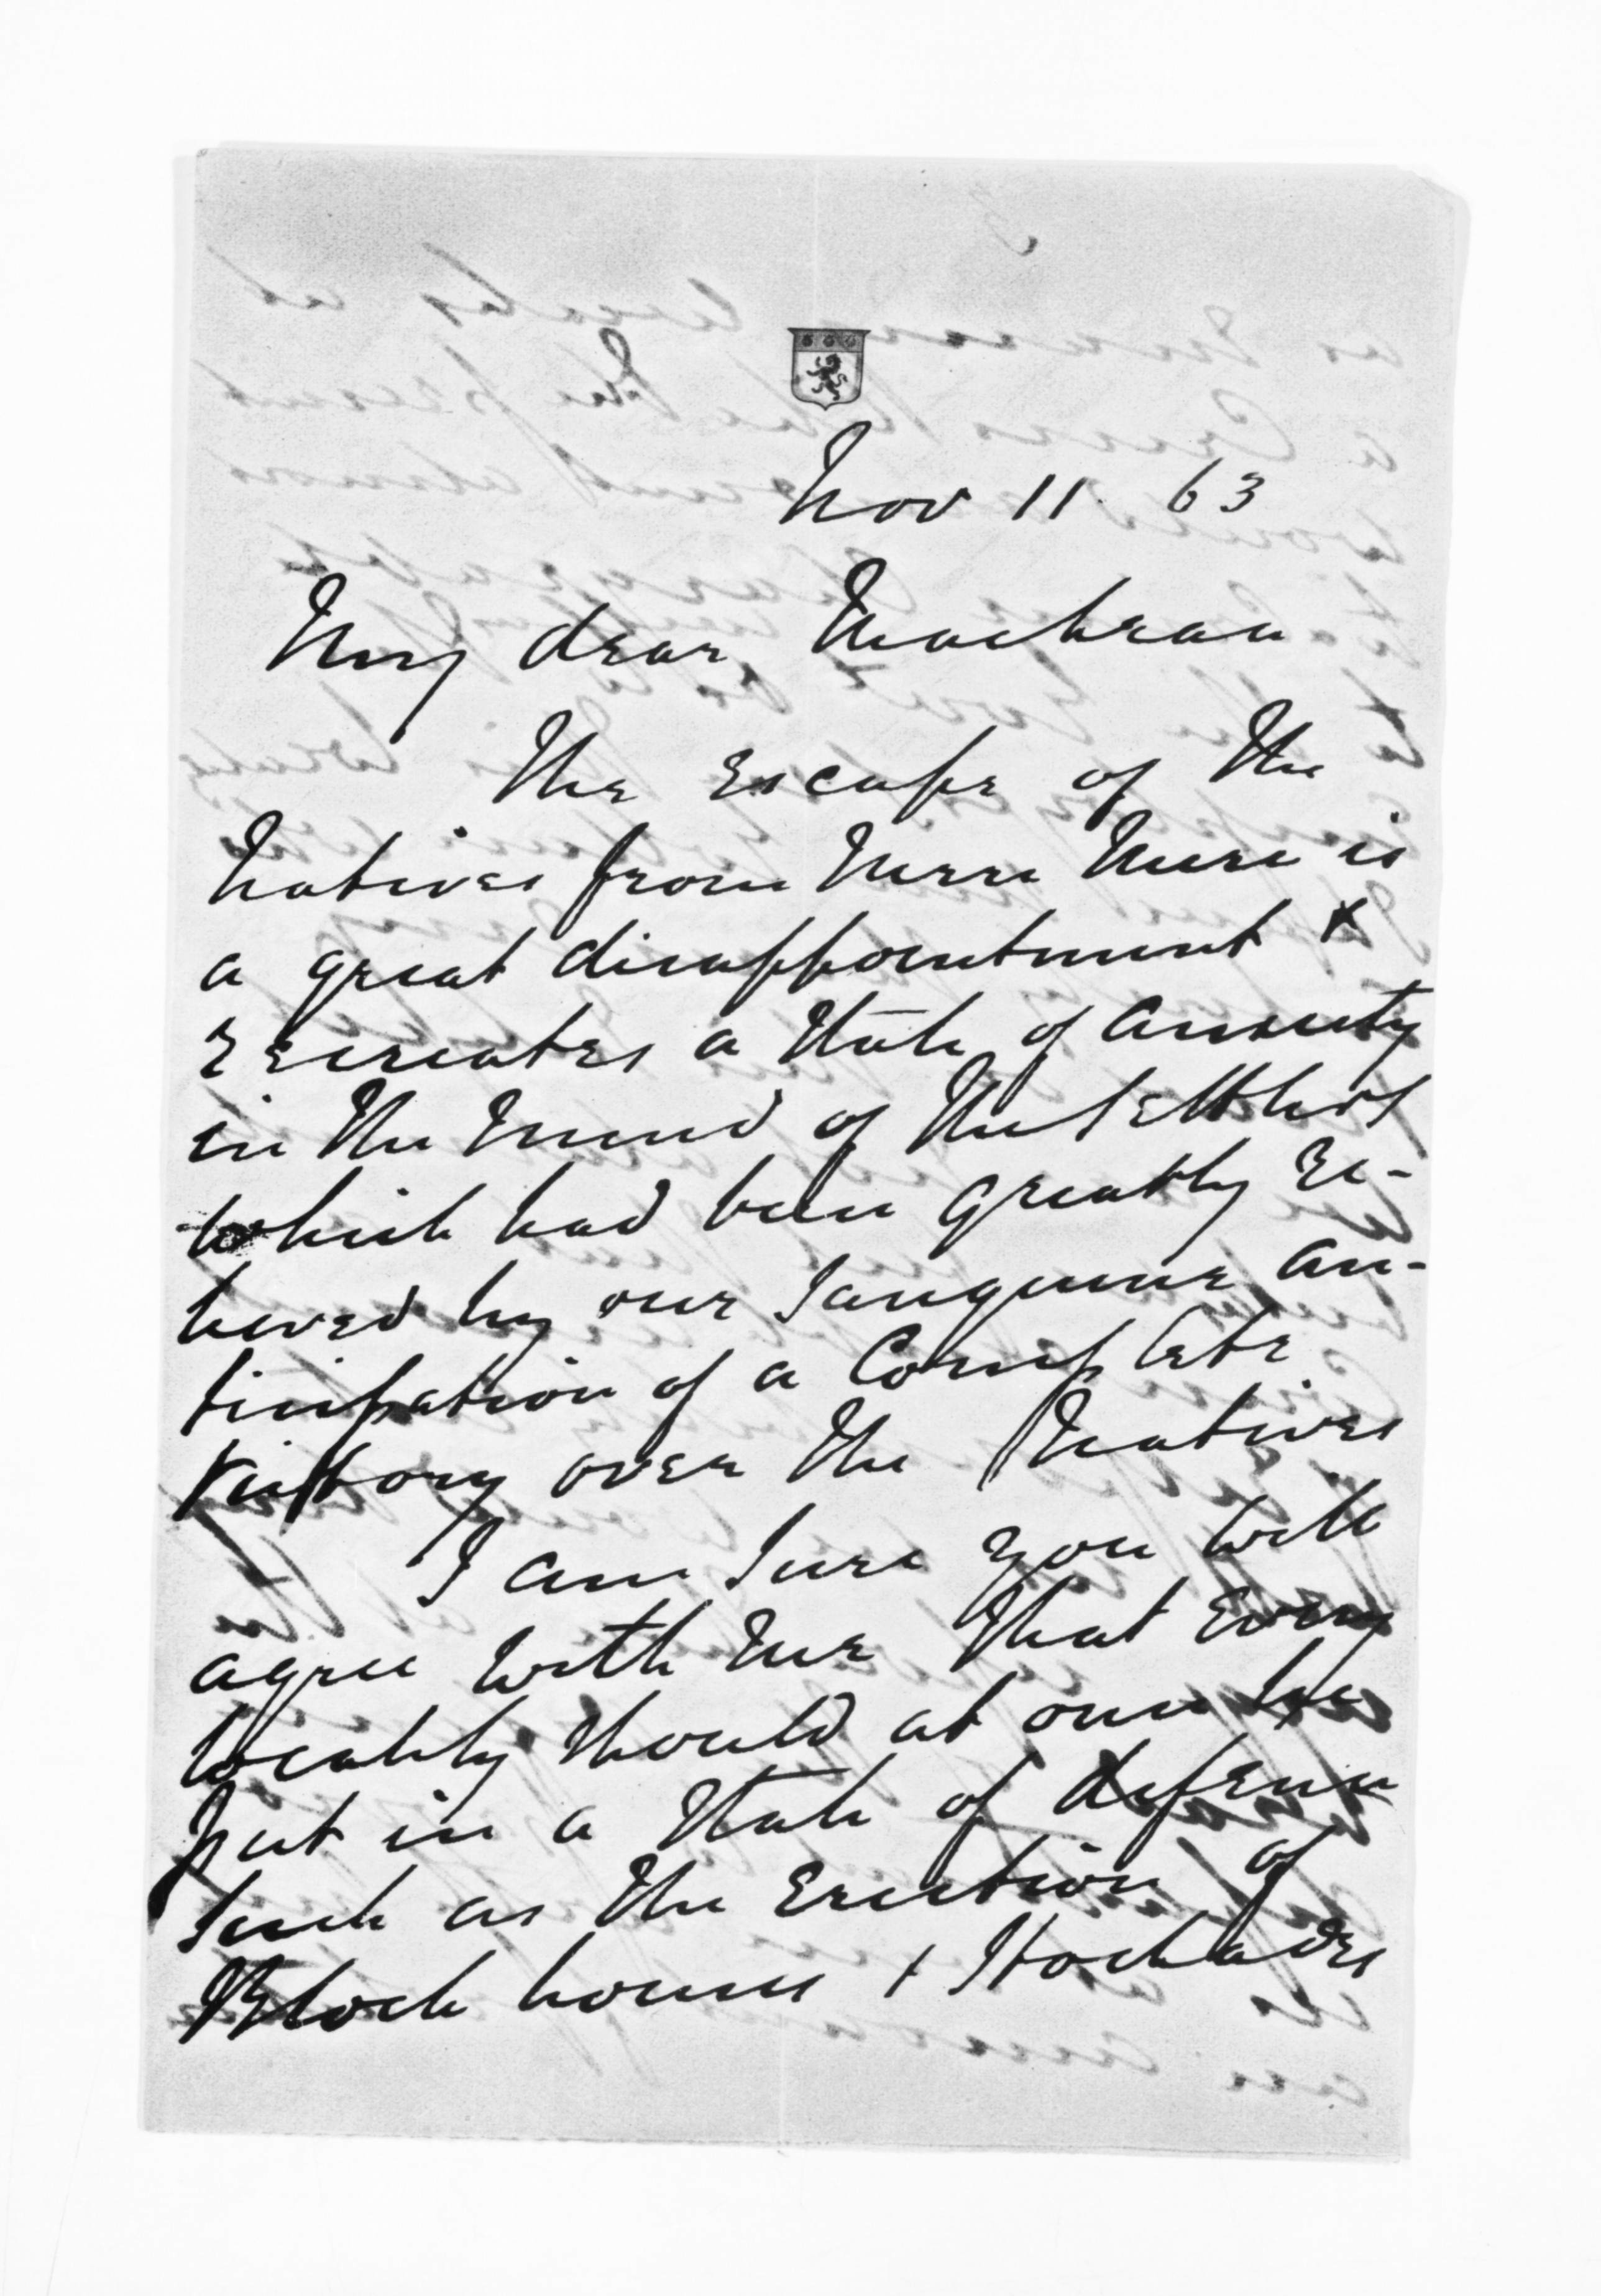 Nov 11 63
My dear Maclean
The escape of the
Natives from Mere Mere is
a great disappointment &
recreates a state of anxiety
in the mind of the settlers
which had been greatly re-
lieved by our sanguine an-
ticipation of a complete
victory over the Natives
I am sure you will
agree with me that every
locality should at once be
put in a state of defence
such as the erection of
Block houses & Stockades